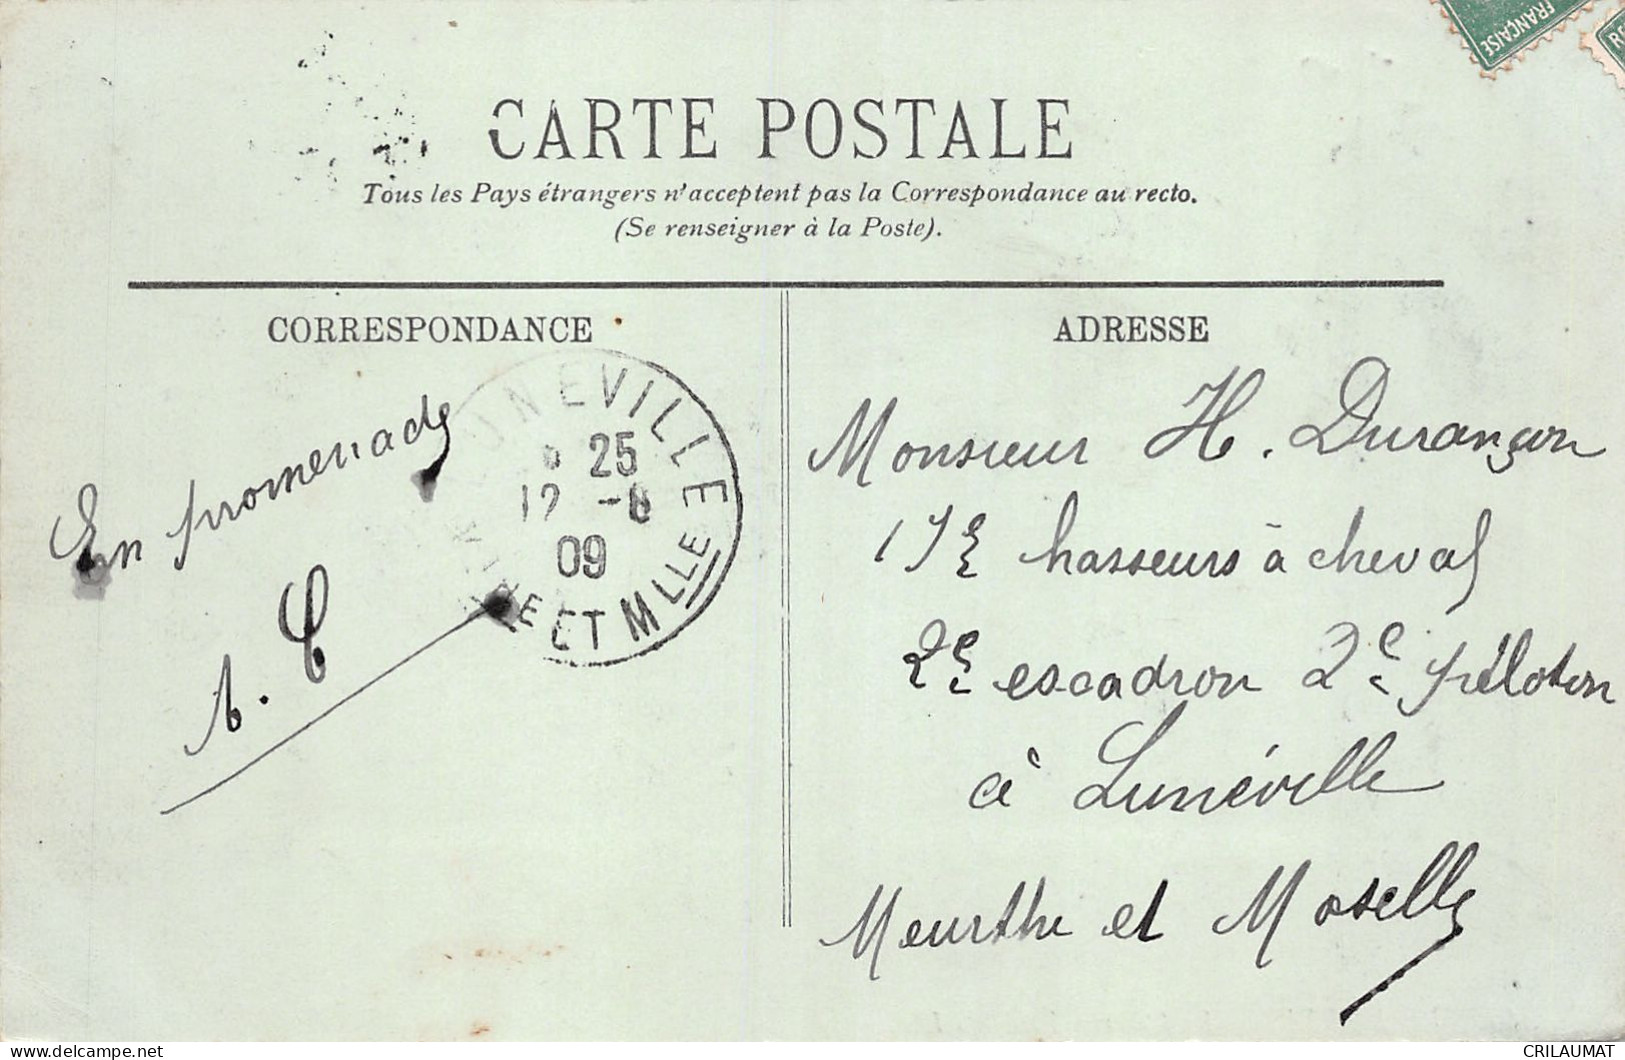 FRANÇAISE
CARTE POSTALE
Tous les Pays étrangers n'acceptent pas la Correspondance au recto.
(Se renseigner à la Poste).
CORRESPONDANCE
En promenade
A. C
UNEVILLE
25
12 -8
09
ET MLLE
ADRESSE
Monsieur H. Durançon
17e hasseurs à cheval
2e escadron 2e péloton
à Lunéville
Meurthe et Moselle
CRILAUMAT